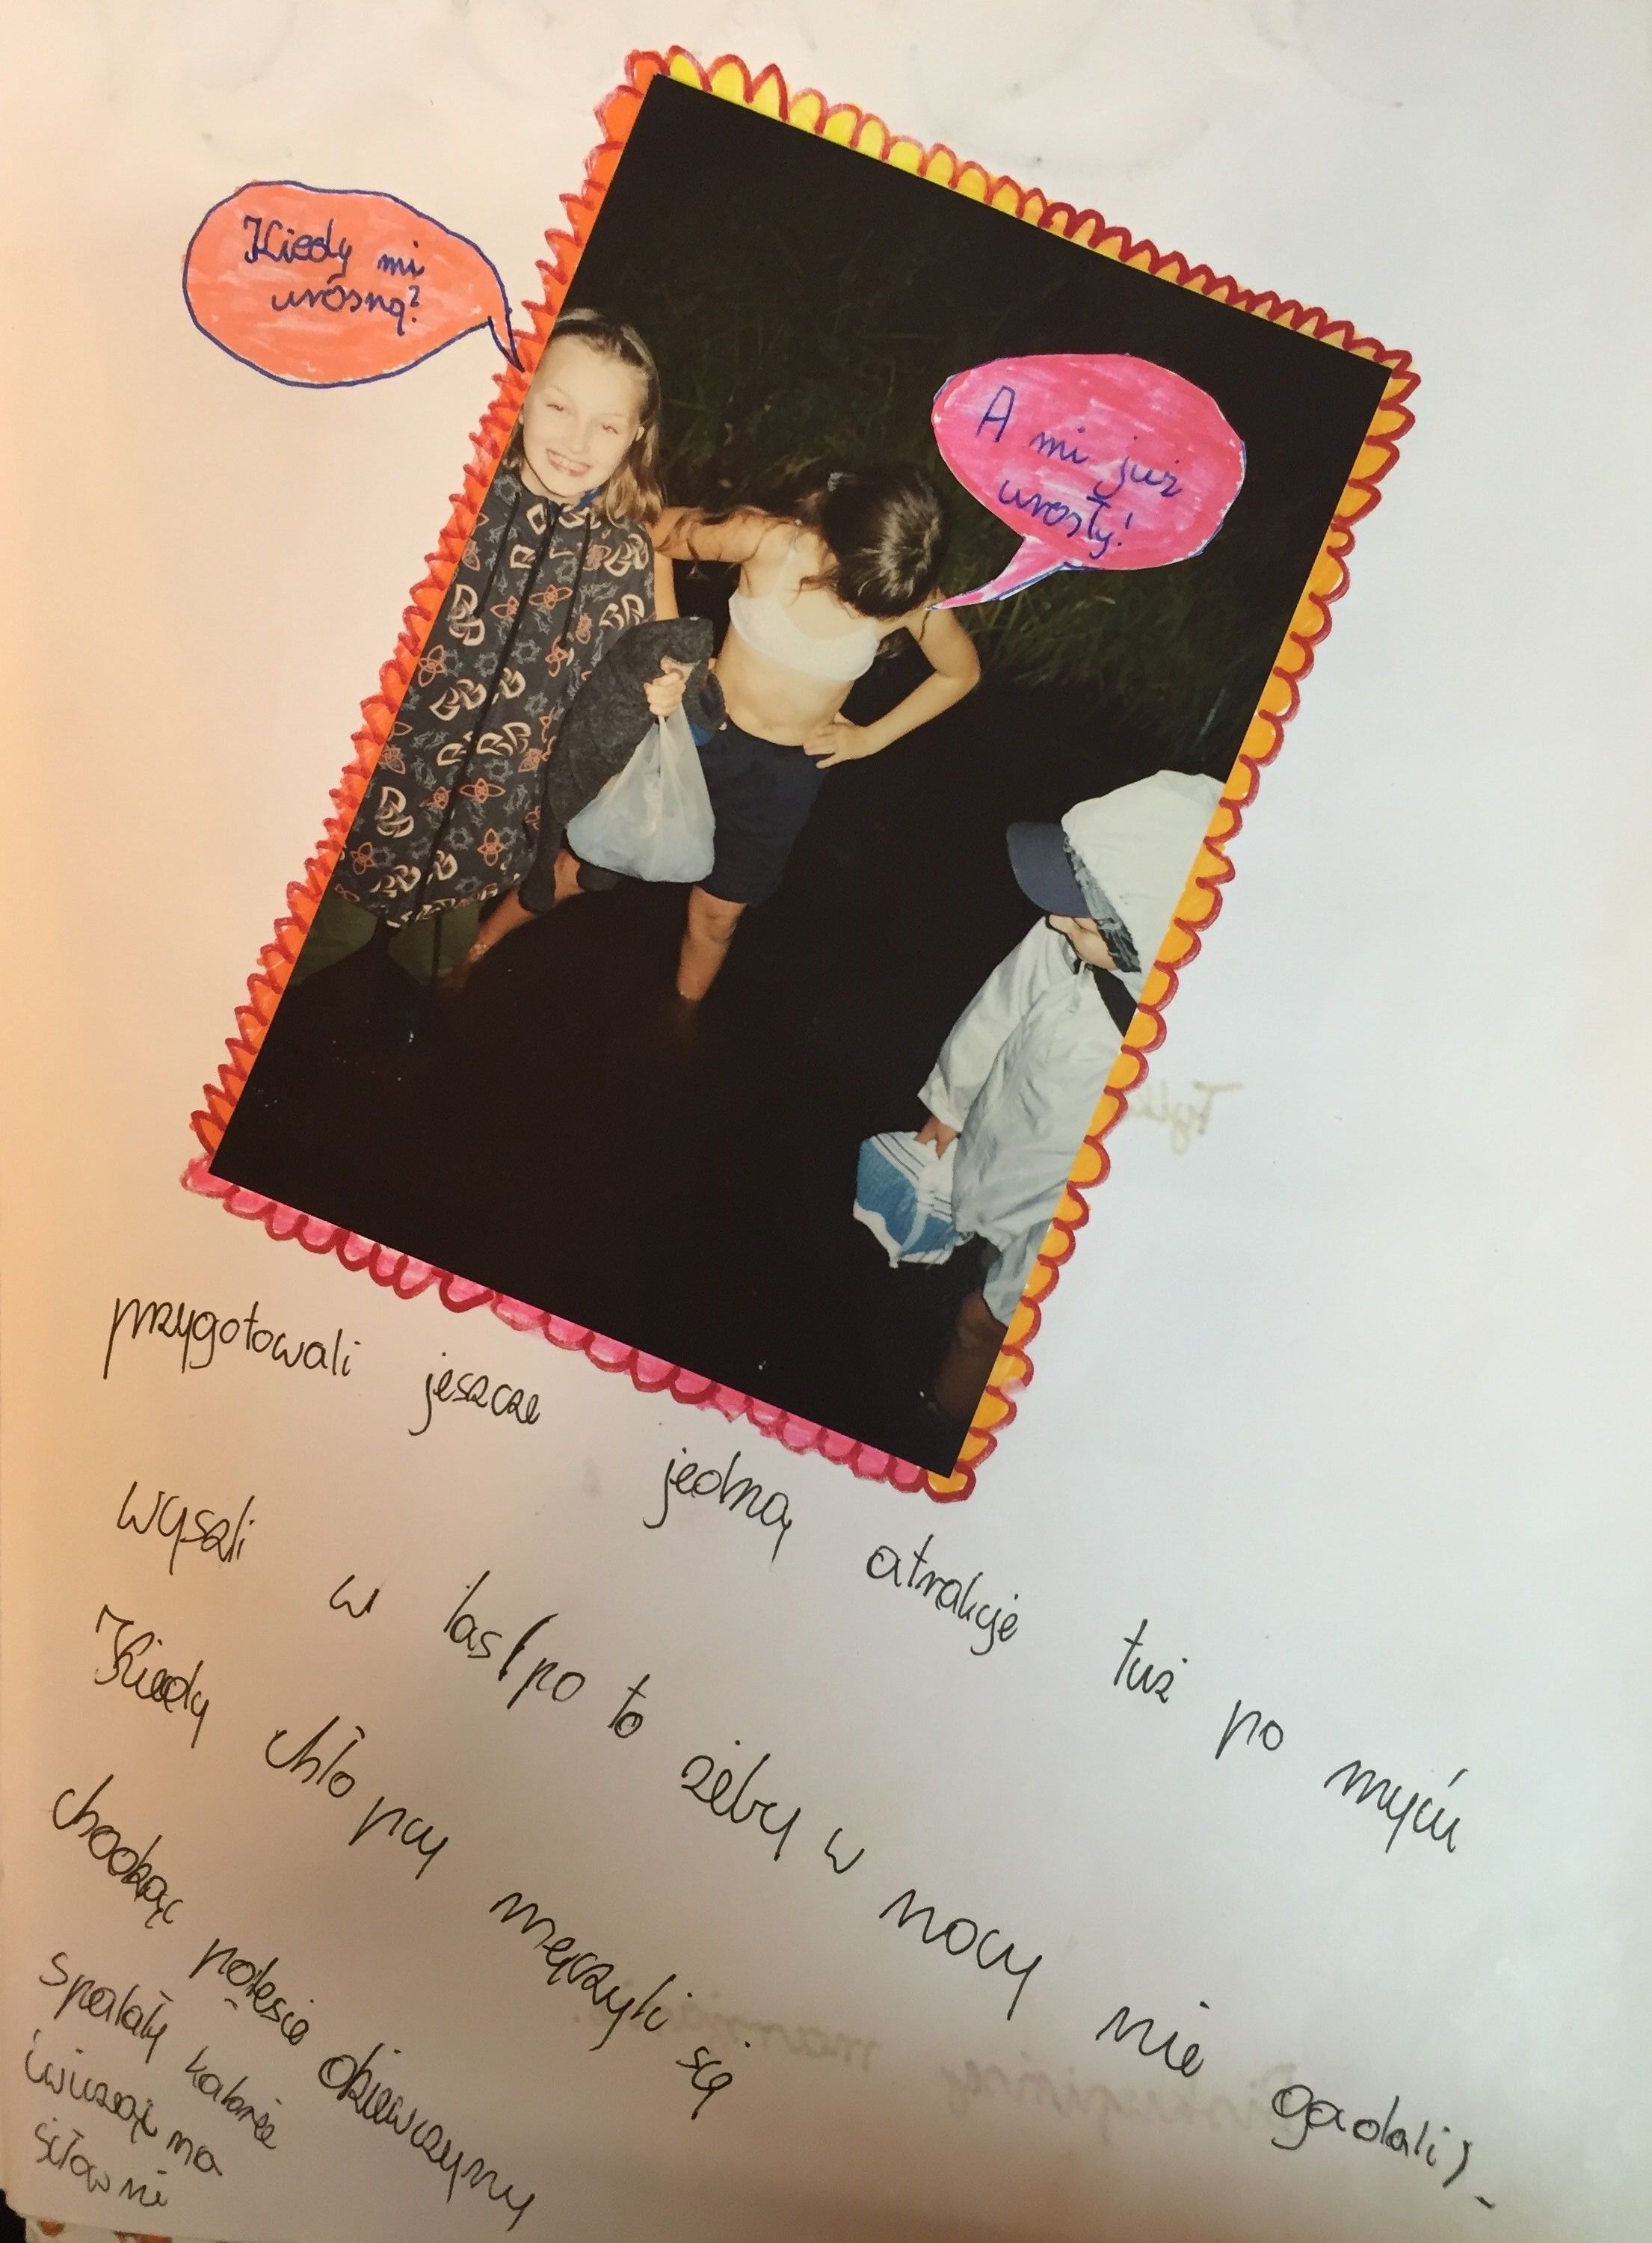 Kiedy mi
urosną?
A mi już
urosły!
przygotowali jeszcze jedną atrakcje tuż po myciu
wyszli w las (po to żeby w nocy nie gadali) -
Kiedy chłopcy męczyli się
chodząc po lesie dziewczyny
spalały kalorie
ćwicząc na
siłowni